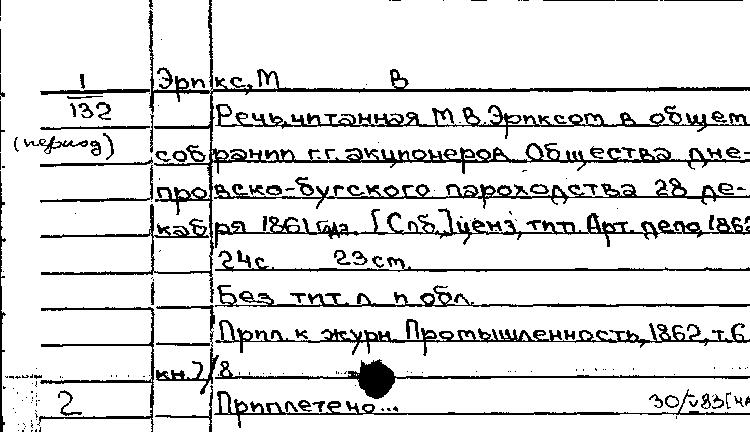 1 Эрпкс, М В
132 Речь, читанная М.В. Эрпксом в общем
(период) собрании г.г. акционеров Общества дне-
провско-бугского пароходства 28 де-
кабря 1861 года. [Спб.] ценз, тип. Арт. дела, 1862
24с. 23 см.
Без тит. л. и обл.
Прил. к журн. Промышленность, 1862, т.6
кн. 7/8
2 Приплетено... 30/V83